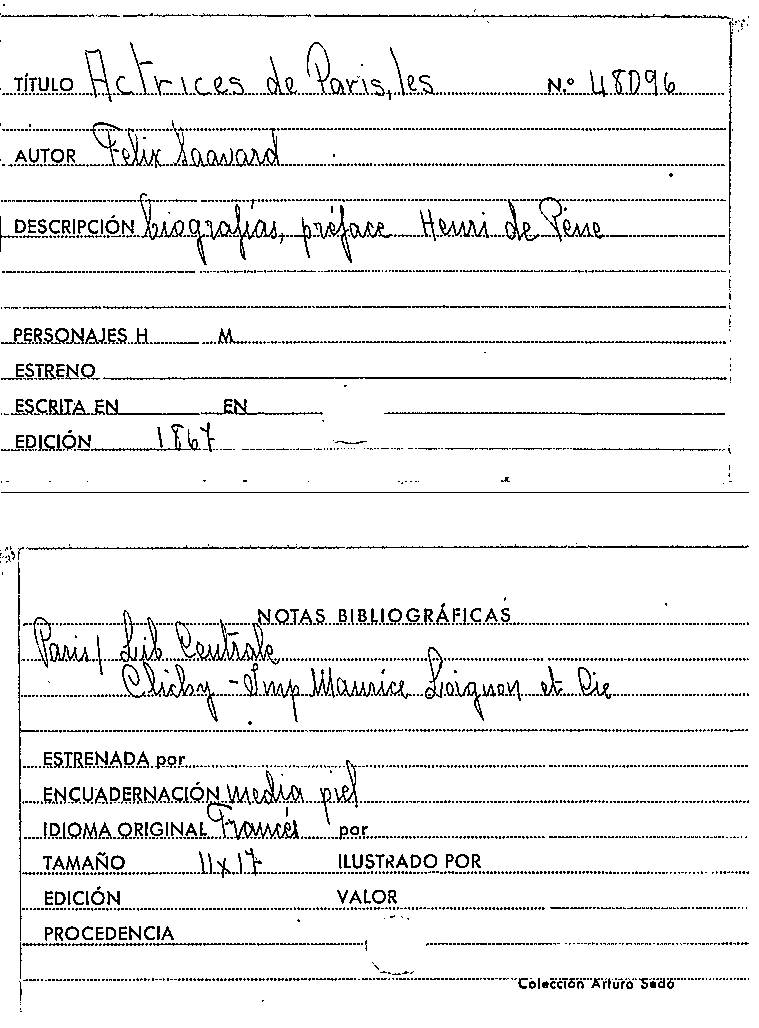 TÍTULO Actrices de Paris, les N.º 48096
AUTOR Felix Saavard
DESCRIPCIÓN biografías, préface Henri de Pène
PERSONAJES H M
ESTRENO
ESCRITA EN EN
EDICIÓN 1867
NOTAS BIBLIOGRÁFICAS
Paris / Lib Centrale
Clichy - Imp Maurice Loignon et Cie
ESTRENADA por
ENCUADERNACIÓN media piel
IDIOMA ORIGINAL Francés por
TAMAÑO 11x17 ILUSTRADO POR
EDICIÓN VALOR
PROCEDENCIA
Colección Arturo Sedó